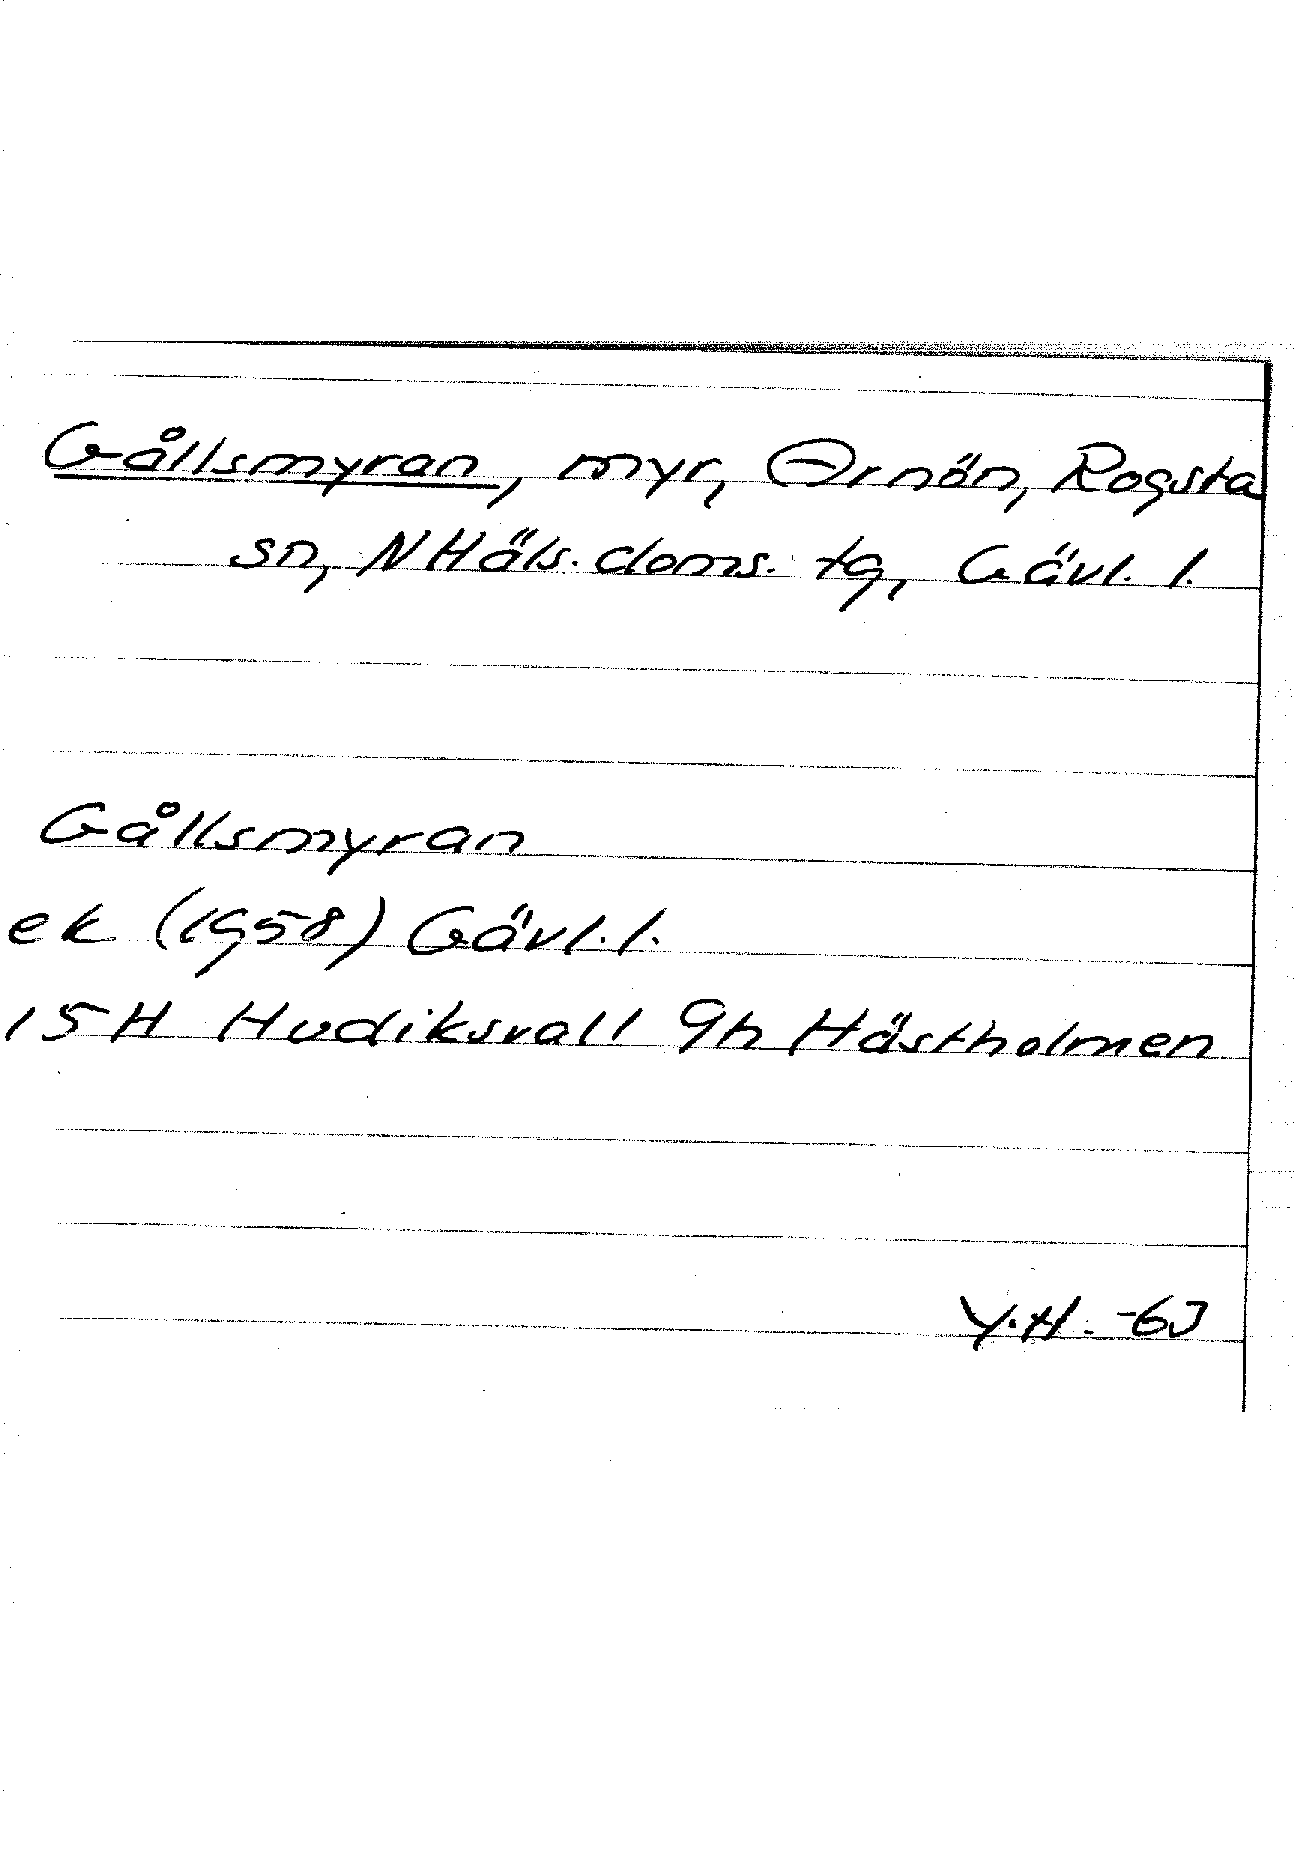 Gållsmyran, myr, Ornön, Rogsta
sn, N Häls. doms. tg, Gävl. l.
Gållsmyran
ek (1958) Gävl. l.
15H Hudiksvall 9h Hästholmen
Y.H. -63